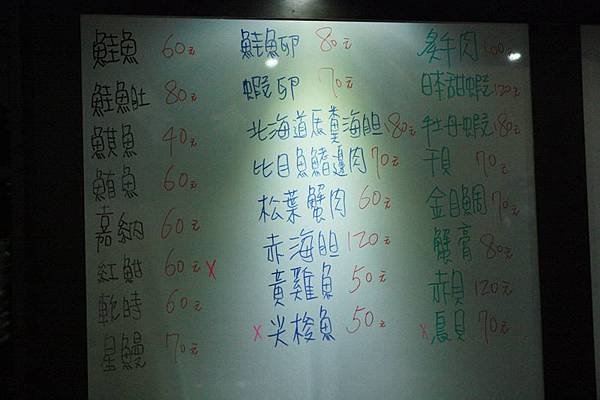 鮭魚 60元
鮭魚肚 80元
鯕魚 40元
鮪魚 60元
嘉納 60元
紅魽 60元 x
軟時 60元
星鰻 70元
鮭魚卵 80元
蝦卵 70元
北海道馬糞海胆 180元
比目魚鰭邊肉 70元
松葉蟹肉 60元
赤海胆 120元
黃雞魚 50元
x 尖梭魚 50元
炙牛肉 100元
日本甜蝦 120元
牡丹蝦 180元
干貝 70元
金目鯛 70元
蟹膏 80元
赤貝 120元
x 鳥貝 70元